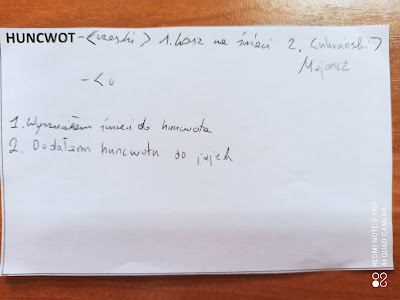 HUNCWOT - <czeski> 1. kosz na śmieci 2. <ukraiński>
Majonez
- <
1. Wyrzuciłem śmieci do huncwota
2. Dodałem huncwotu do jajek
REDMI NOTE 8 PRO
AI QUAD CAMERA